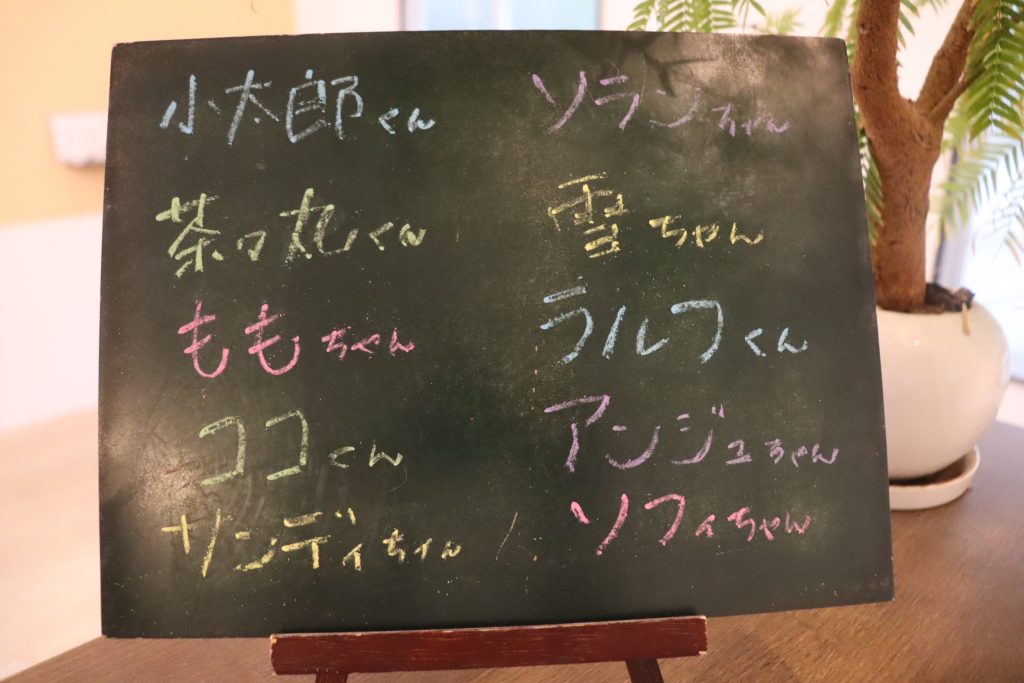 小太郎くん
茶々丸くん
ももちゃん
ココくん
サンディちゃん
ソランちゃん
雪ちゃん
ラルフくん
アンジュちゃん
ソフィちゃん